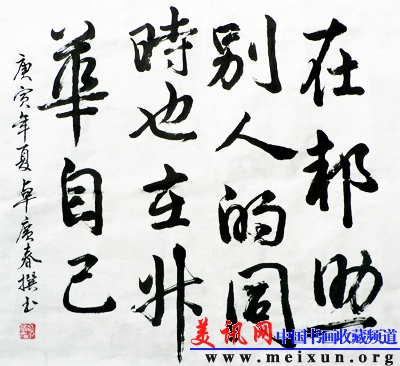 在邦助
别人的同
時也在升
華自己
庚寅年夏卓廣春撰書
美讯网
中国书画收藏频道
www.meixun.org